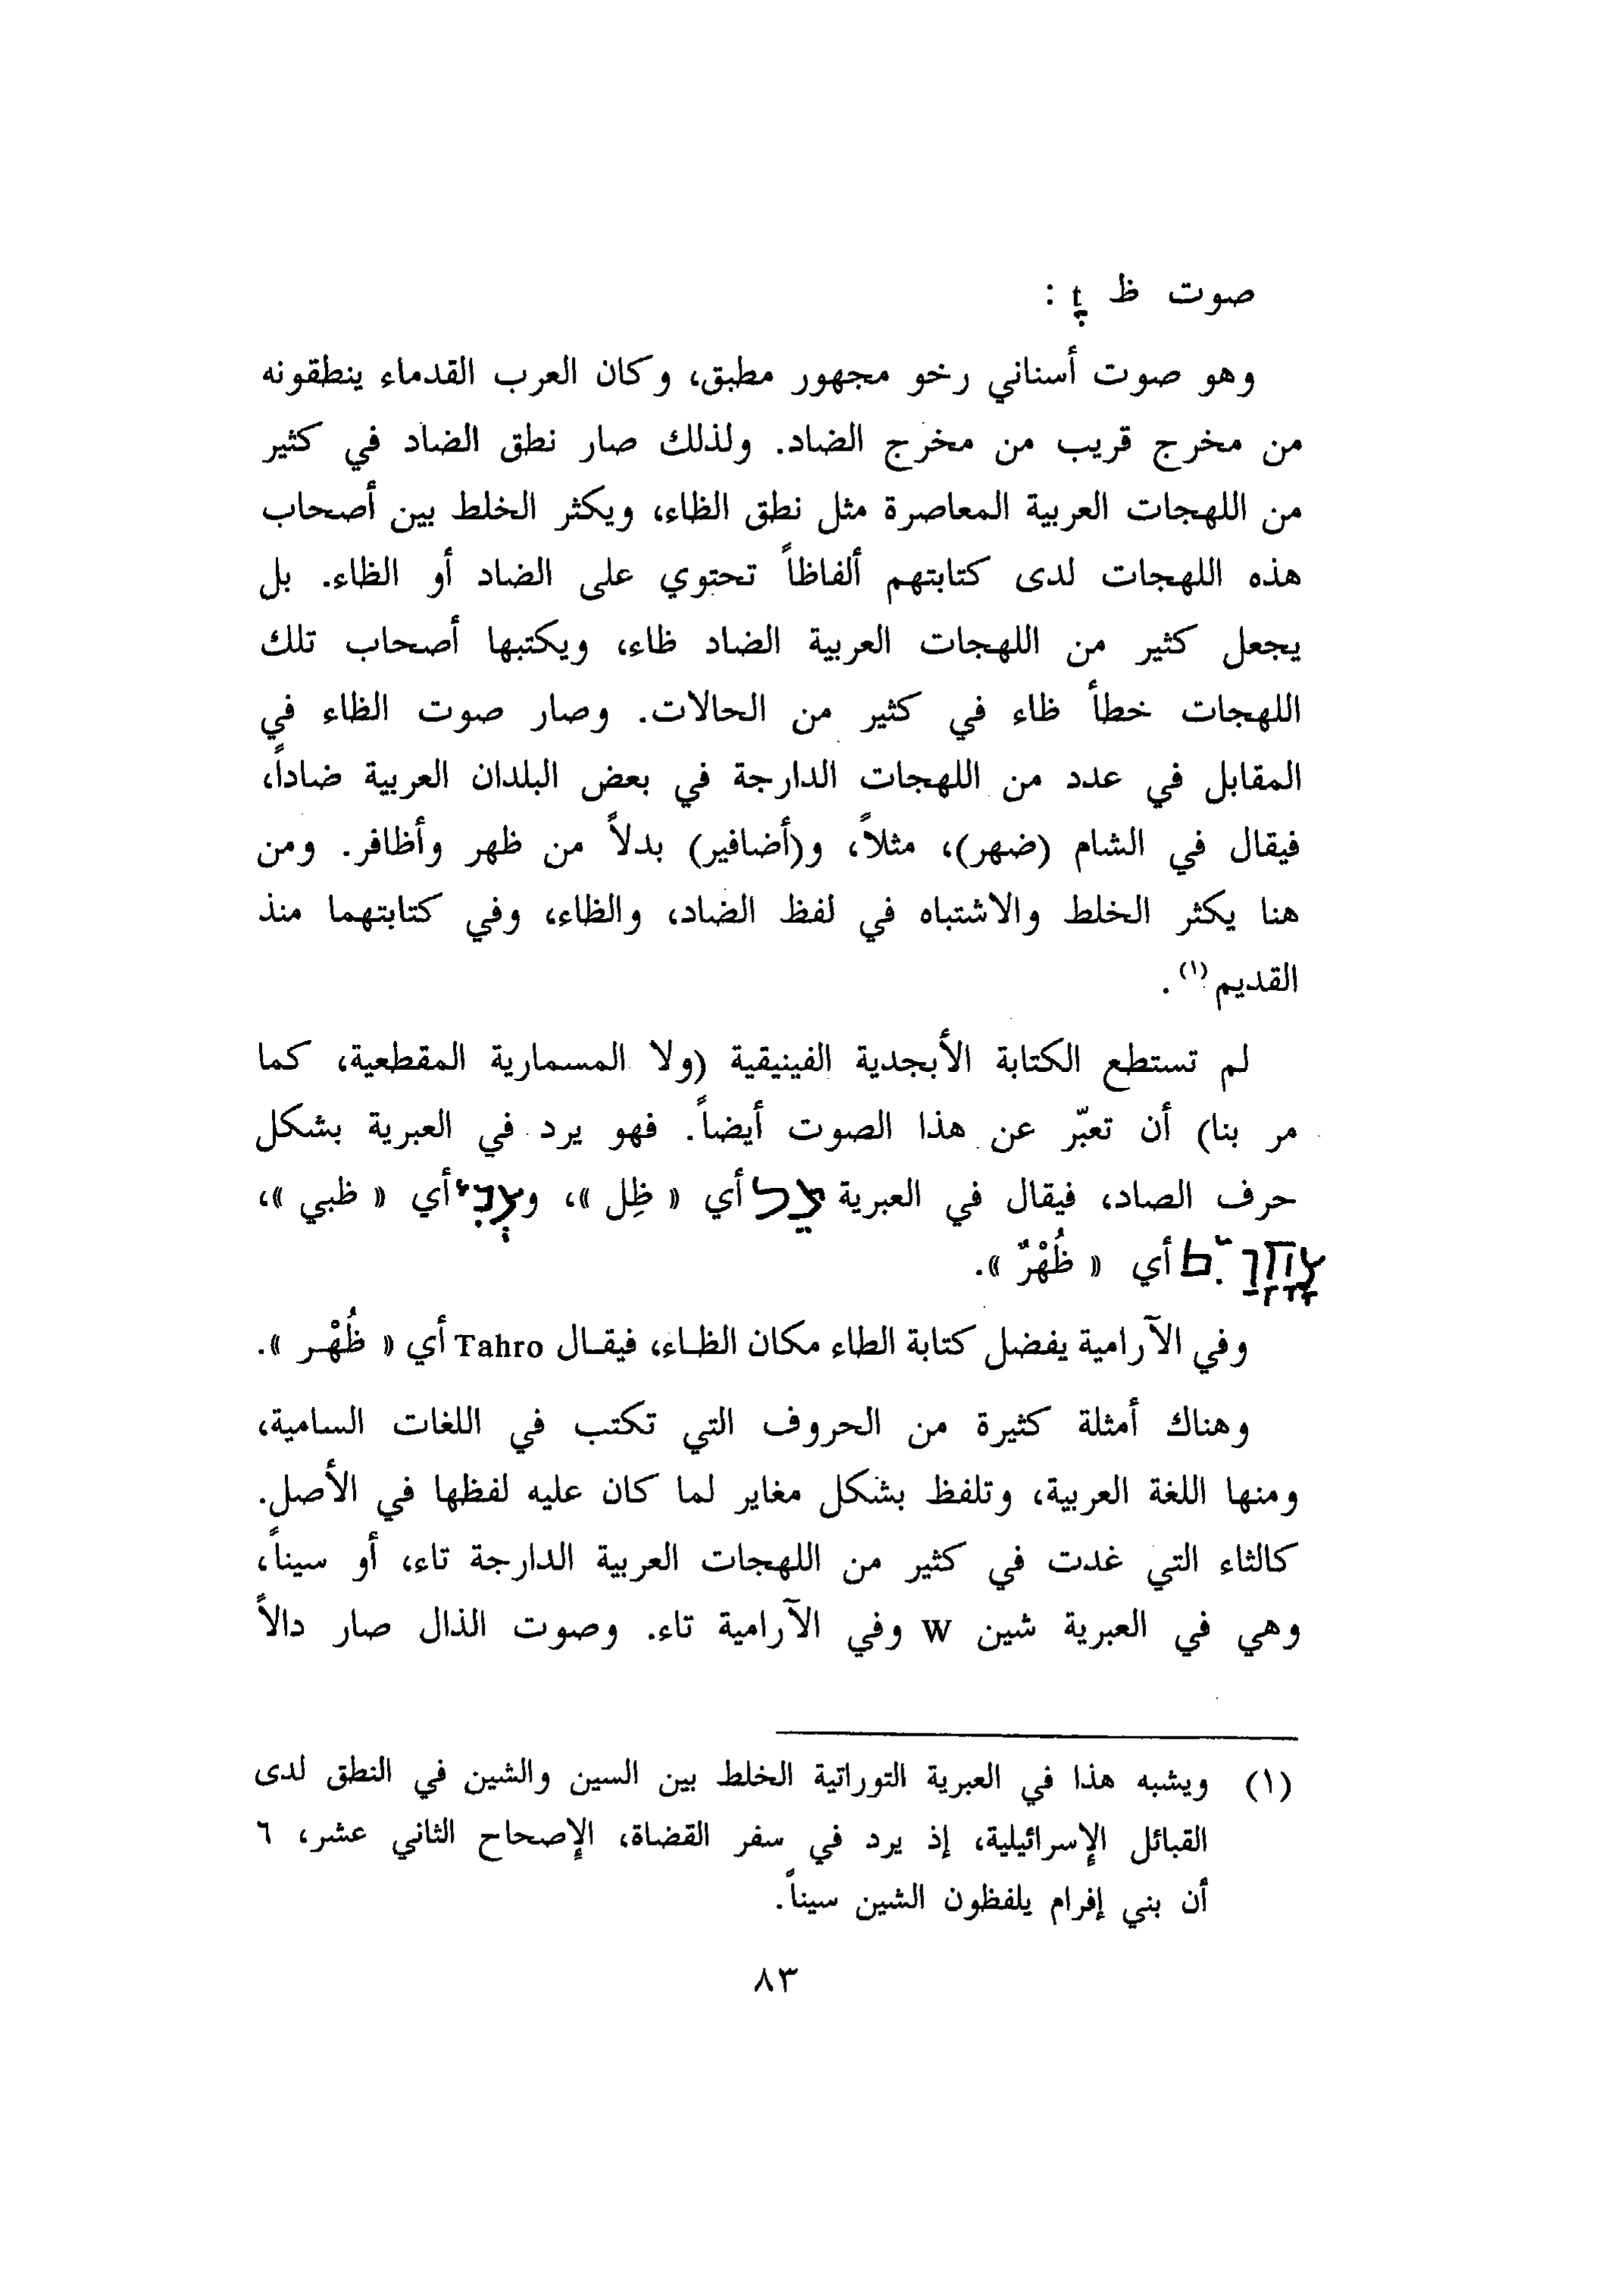 صوت ظ ṭ :
وهو صوت أسناني رخو مجهور مطبق، وكان العرب القدماء ينطقونه
من مخرج قريب من مخرج الضاد. ولذلك صار نطق الضاد في كثير
من اللهجات العربية المعاصرة مثل نطق الظاء، ويكثر الخلط بين أصحاب
هذه اللهجات لدى كتابتهم ألفاظاً تحتوي على الضاد أو الظاء. بل
يجعل كثير من اللهجات العربية الضاد ظاء، ويكتبها أصحاب تلك
اللهجات خطأ ظاء في كثير من الحالات. وصار صوت الظاء في
المقابل في عدد من اللهجات الدارجة في بعض البلدان العربية ضاداً،
فيقال في الشام (ضهر)، مثلاً، و(أضافير) بدلاً من ظهر وأظافر. ومن
هنا يكثر الخلط والاشتباه في لفظ الضاد، والظاء، وفي كتابتهما منذ
القديم(١).
لم تستطع الكتابة الأبجدية الفينيقية (ولا المسمارية المقطعية، كما
مر بنا) أن تعبّر عن هذا الصوت أيضاً. فهو يرد في العبرية بشكل
حرف الصاد، فيقال في العبرية צֵל أي « ظِل »، وצְבִי أي « ظبي »،
أي « ظُهْرٌ ».
وفي الآرامية يفضل كتابة الطاء مكان الظاء، فيقال Tahro أي « ظُهْر ».
وهناك أمثلة كثيرة من الحروف التي تكتب في اللغات السامية،
ومنها اللغة العربية، وتلفظ بشكل مغاير لما كان عليه لفظها في الأصل.
كالثاء التي غدت في كثير من اللهجات العربية الدارجة تاء، أو سيناً،
وهي في العبرية شين W وفي الآرامية تاء. وصوت الذال صار دالاً
(١) ويشبه هذا في العبرية التوراتية الخلط بين السين والشين في النطق لدى
القبائل الإسرائيلية، إذ يرد في سفر القضاة، الإصحاح الثاني عشر، ٦
أن بني إفرام يلفظون الشين سيناً.
٨٣